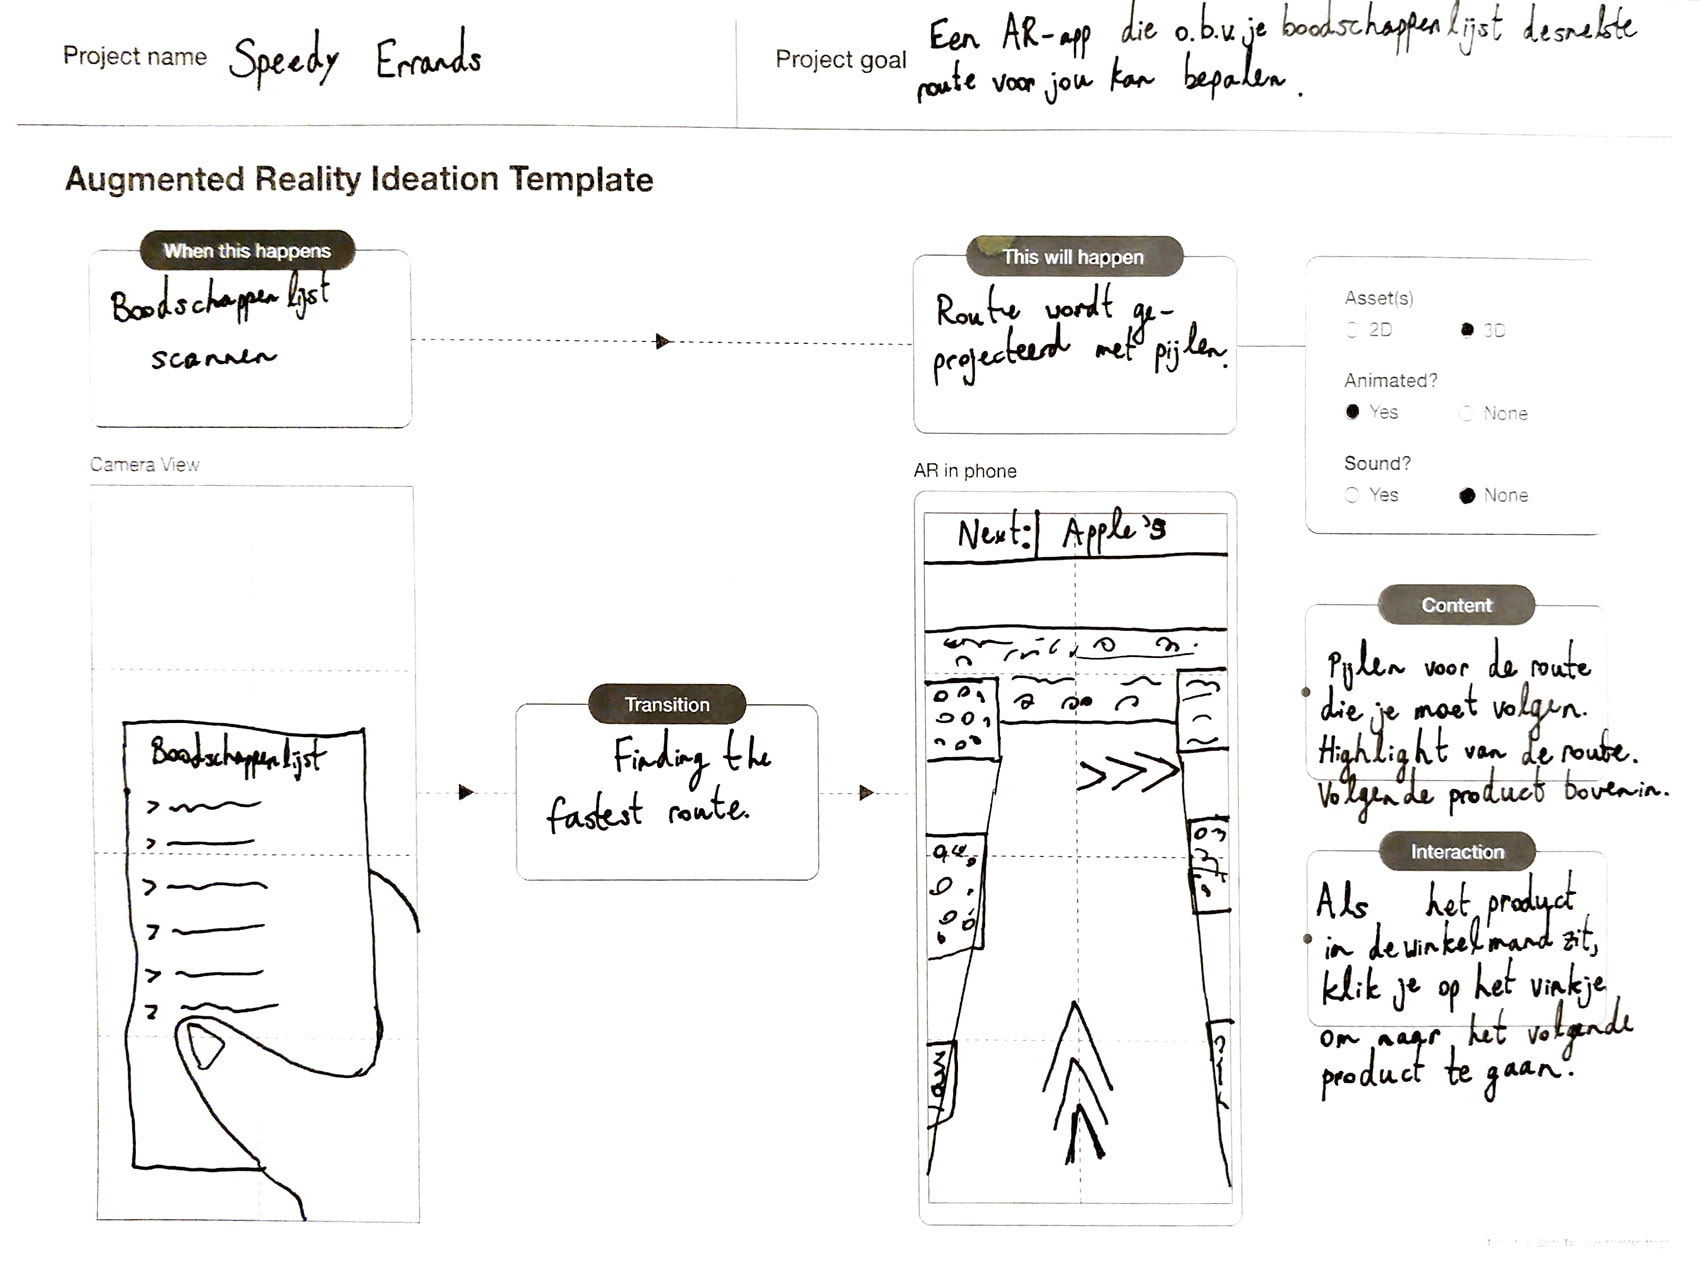 Project name Speedy Errands
Project goal Een AR-app die o.b.v. je boodschappenlijst de snelste
route voor jou kan bepalen.
Augmented Reality Ideation Template
When this happens
Boodschappenlijst
scannen
This will happen
Route wordt ge-
projecteerd met pijlen.
Asset(s)
2D 3D
Animated?
Yes None
Sound?
Yes None
Camera View
Boodschappenlijst
Transition
Finding the
fastest route.
AR in phone
Next: Apple's
Content
Pijlen voor de route
die je moet volgen.
Highlight van de route.
Volgende product bovenin.
Interaction
Als het product
in de winkelmand zit,
klik je op het vinkje
om naar het volgende
product te gaan.